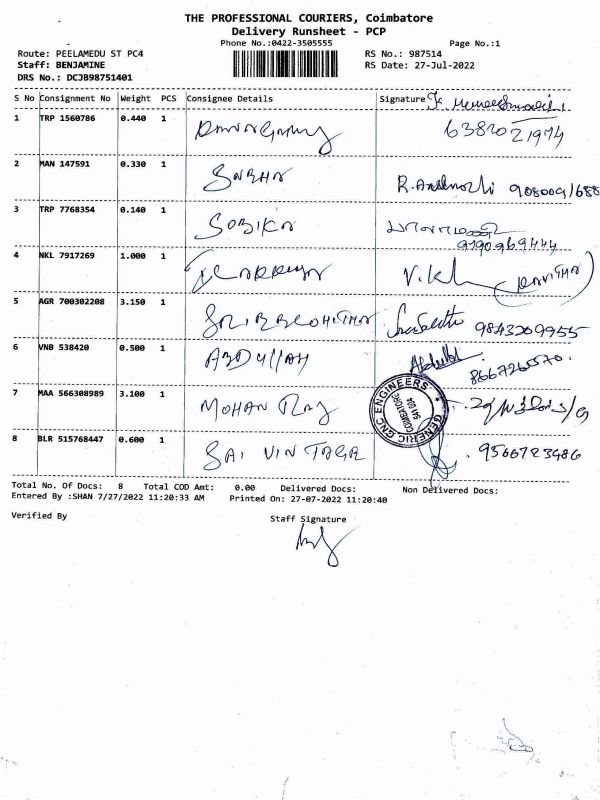 THE PROFESSIONAL COURIERS, Coimbatore
Delivery Runsheet - PCP
Phone No.:0422-3505555 Page No.:1
Route: PEELAMEDU ST PC4 RS No.: 987514
Staff: BENJAMINE RS Date: 27-Jul-2022
DRS No.: DCJB98751401
S No Consignment No Weight PCS Consignee Details Signature
1 TRP 1560786 0.440 1
6382021974
2 MAN 147591 0.330 1 SUBHA
3 TRP 7768354 0.140 1 SOBIKA
9190969444
4 NKL 7917269 1.000 1
5 AGR 700302208 3.150 1 9843209955
6 VNB 538420 0.500 1 ABDULLAH Abdullah
8667265570.
7 MAA 566308989 3.100 1 MOHAN RAJ
GENERIC CNC ENGINEERS
COIMBATORE
8 BLR 515768447 0.600 1 SAI VINTAGE 9566723486
Total No. Of Docs: 8 Total COD Amt: 0.00 Delivered Docs: Non Delivered Docs:
Entered By :SHAN 7/27/2022 11:20:33 AM Printed On: 27-07-2022 11:20:40
Verified By Staff Signature